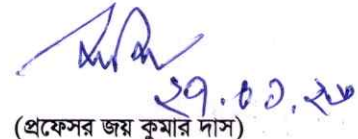 ২৭.০১.২৬
(প্রফেসর জয় কুমার দাস)